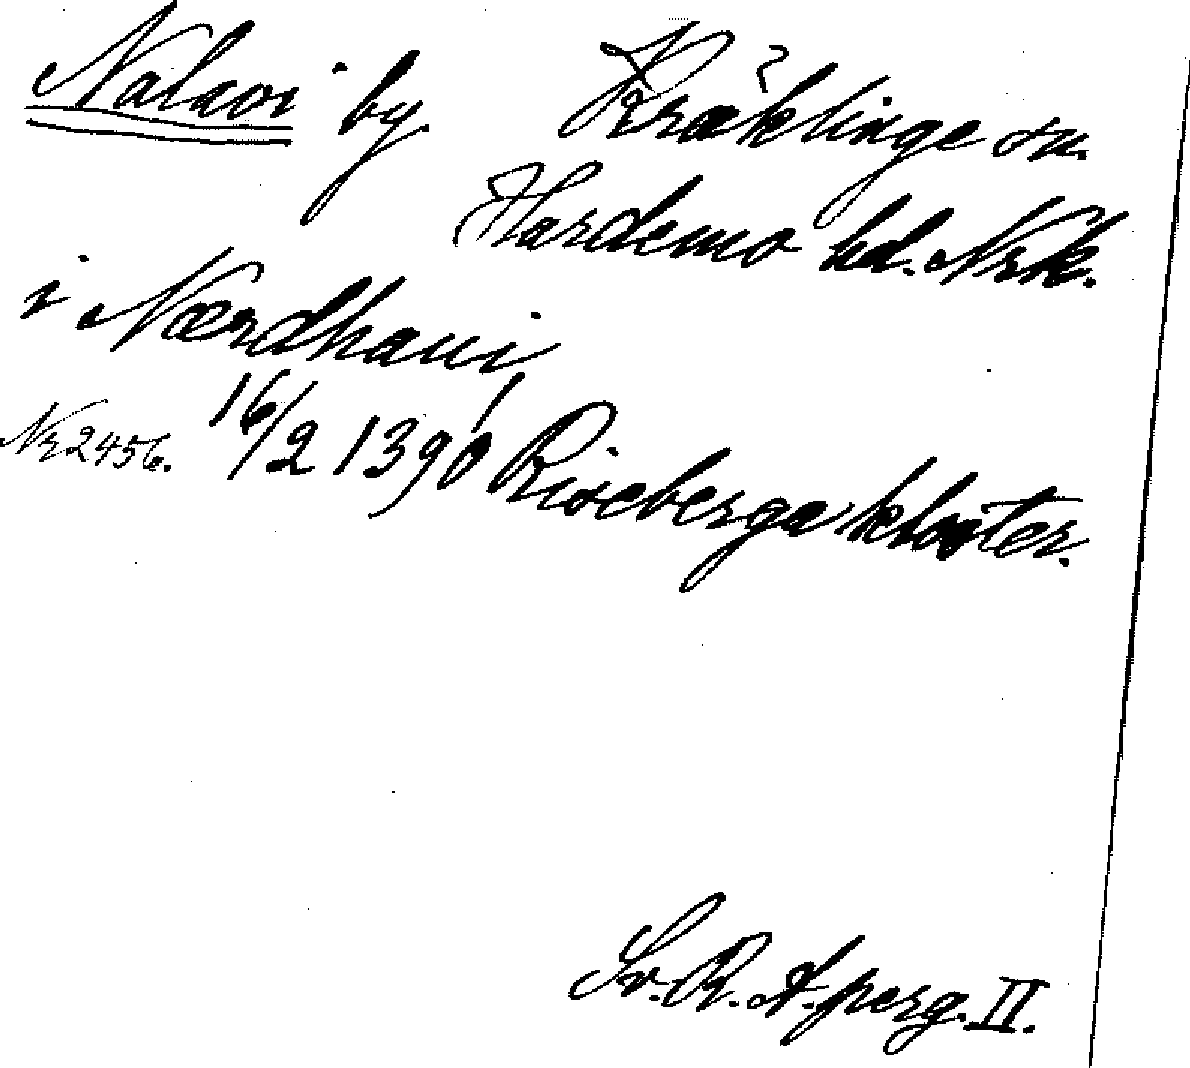 Nalavi by Kräklinge sn.
Hardemo hd. Nrk.
i Nærdhaui
Nr 2456. 16/2 1390 Riseberga kloster.
Sv. R. A. perg. II.